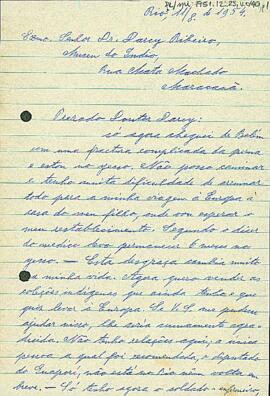 Rio, 11/8. de 1954.
Exmo. Senhor Dr. Darcy Ribeiro,
Museu do Indio,
Rua Mata Machado
Maracanã.
Prezado Doutor Darcy:
só agora cheguei de Belém
com uma fractura complicada da perna
e estou no gesso. Não posso caminar
e tenho muita dificuldade de arrumar
tudo para a minha viagem a Europa á
casa do meu filho, onde vou esperar o
meu restabelecimento. Segundo o dizer
do medico devo permanecer 6 meses no
gesso. — Esta desgraça cambia muito
a minha vida. Agora quero vender as
coleções indigenas que ainda tenho e que
quis levar á Europa. Se V.S. me podesse
ajudar nisso, lhe seria sumamente agra-
decida. Não tenho relações aqui, a unica
pessoa a qual foi recomendada, o deputado
do Guaporé, não está no Rio nem volta em
breve. — Só tenho agora o soldado-enfermeiro,